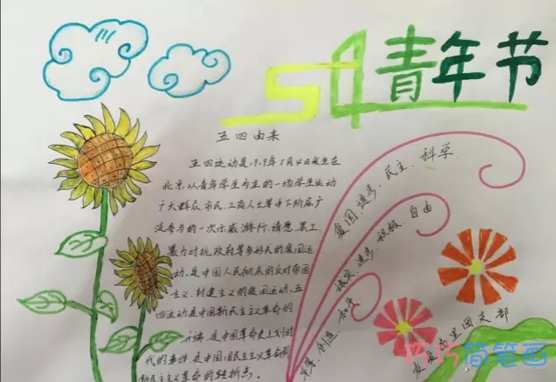 54青年节
五四由来
五四运动是1919年5月4日发生在
北京以青年学生为主的一场学生运动
广大群众、市民、工商人士等中下阶层广
泛参与的一次示威游行、请愿、罢工、
暴力对抗政府等多形式的爱国运
动、是中国人民彻底的反对帝国
主义、封建主义的爱国运动、五
四运动是中国新民主主义革命的
开端、是中国革命史上划时
代的事件、是中国旧民主主义革命到
新民主主义革命的转折点。
爱国、进步、民主、科学
进步、积极、自由
团支部
简笔画